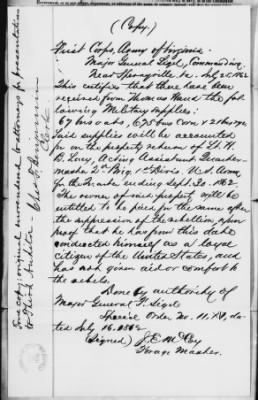 (Copy.)
First Corps, Army of Virginia
Major General Sigel, Commanding.
Near Sperryville, Va. July 25, 1862
This certifies that there have been
received from Thomas Wand the fol-
lowing Military supplies:
67 bus oats, 675 bus Corn, & 21 bus rye
Said supplies will be accounted
for on the property return of H.
B. Acting Assistant Quarter-
master 2nd Brig, 1st Divis, U.S. Army
for the Quarter ending Sept. 30, 1862
The owner of said property will be
entitled to be paid for the same after
the suppression of the rebellion, upon
proof that he has from this date
conducted himself as a loyal
citizen of the United States, and
has not given aid or comfort to
the rebels.
Done by authority of
Major General F. Sigel
Special Order No. 11. da-
ted July 16. 1862.
(Signed) J. E. McCoy
Forage Master.
True copy: original surrendered to attorneys for presentation
to Third Auditor - Chas. F. Benjamin
Clerk